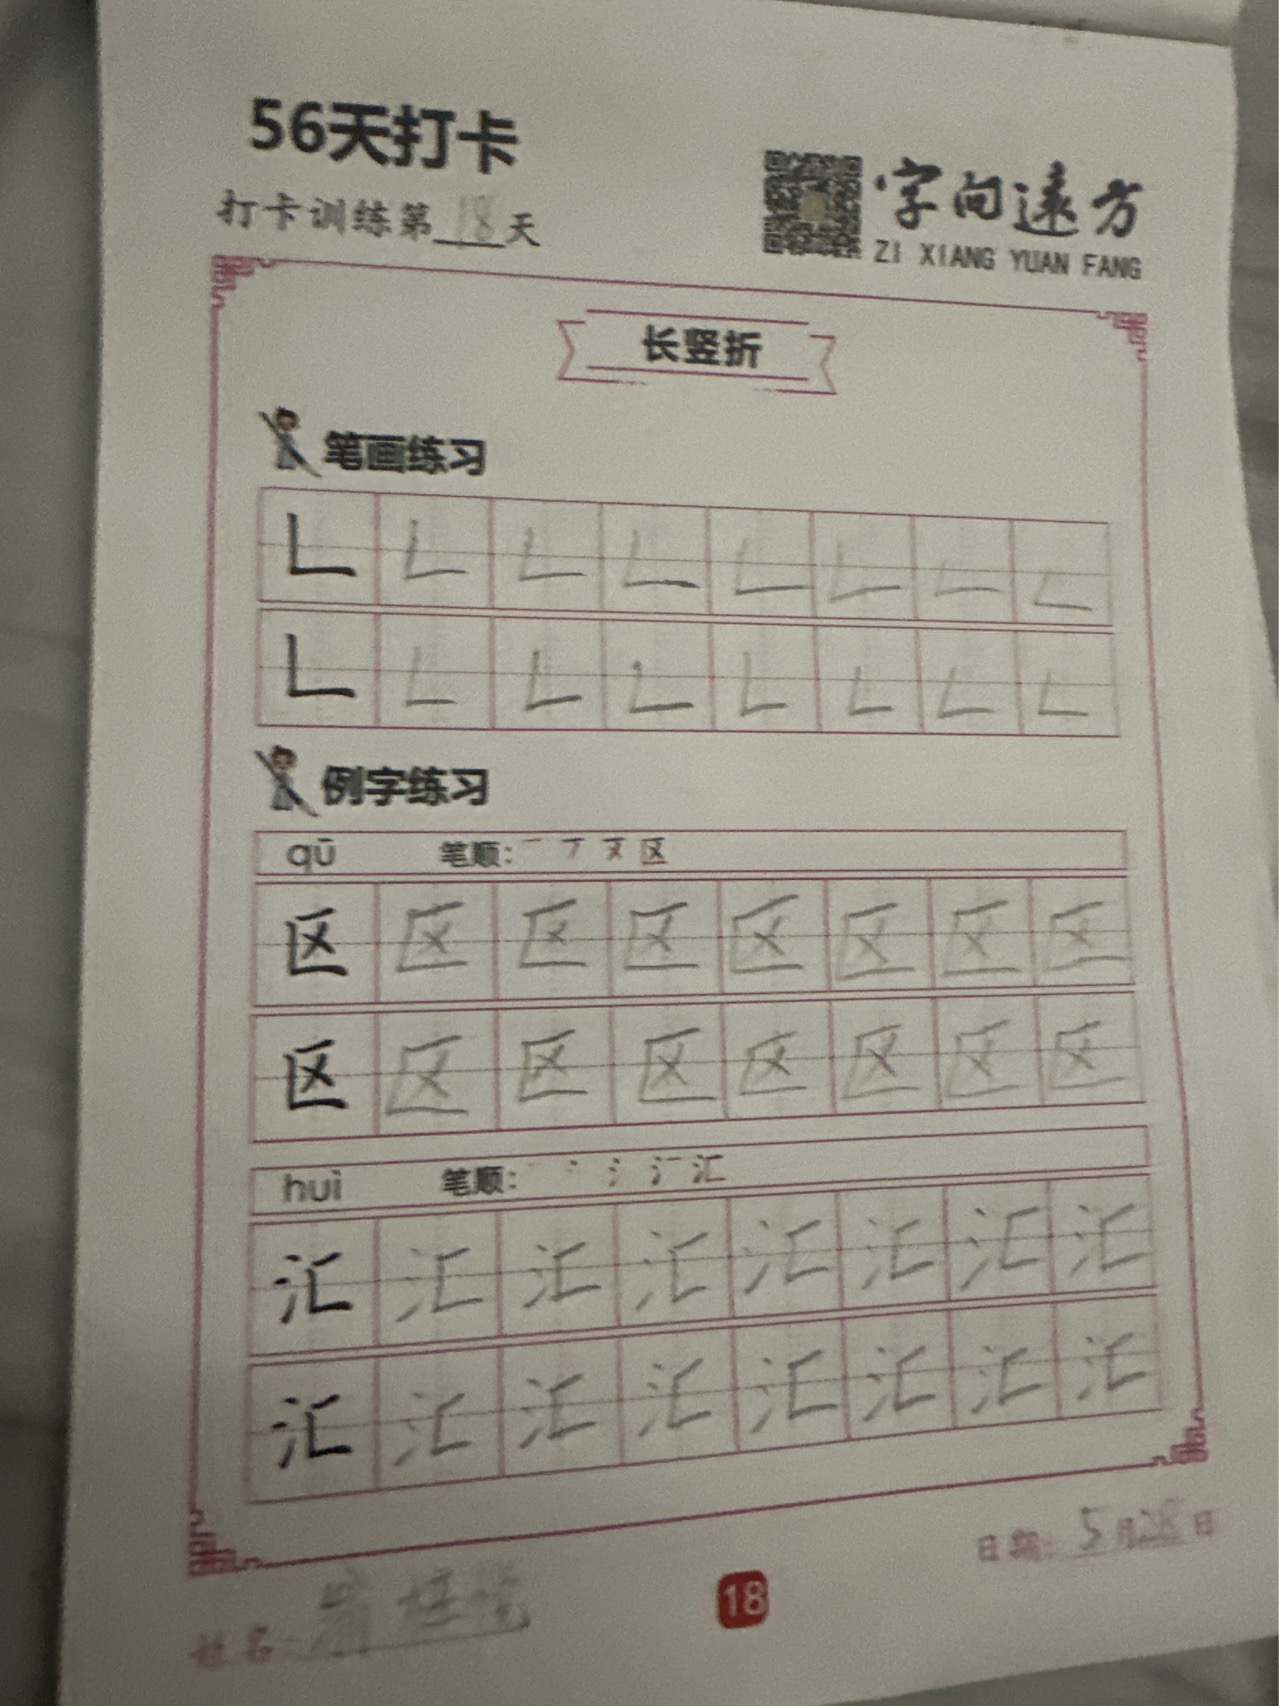 56天打卡
打卡训练第18天
字向远方
ZI XIANG YUAN FANG
长竖折
笔画练习
𠃊 𠃊 𠃊 𠃊 𠃊 𠃊 𠃊 𠃊
𠃊 𠃊 𠃊 𠃊 𠃊 𠃊 𠃊 𠃊
例字练习
qū 笔顺: 一 丆 区
区 区 区 区 区 区 区 区
区 区 区 区 区 区 区 区
huì 笔顺: 丶 冫 氵 汇
汇 汇 汇 汇 汇 汇 汇 汇
汇 汇 汇 汇 汇 汇 汇 汇
日期: 5月28日
18
姓名: